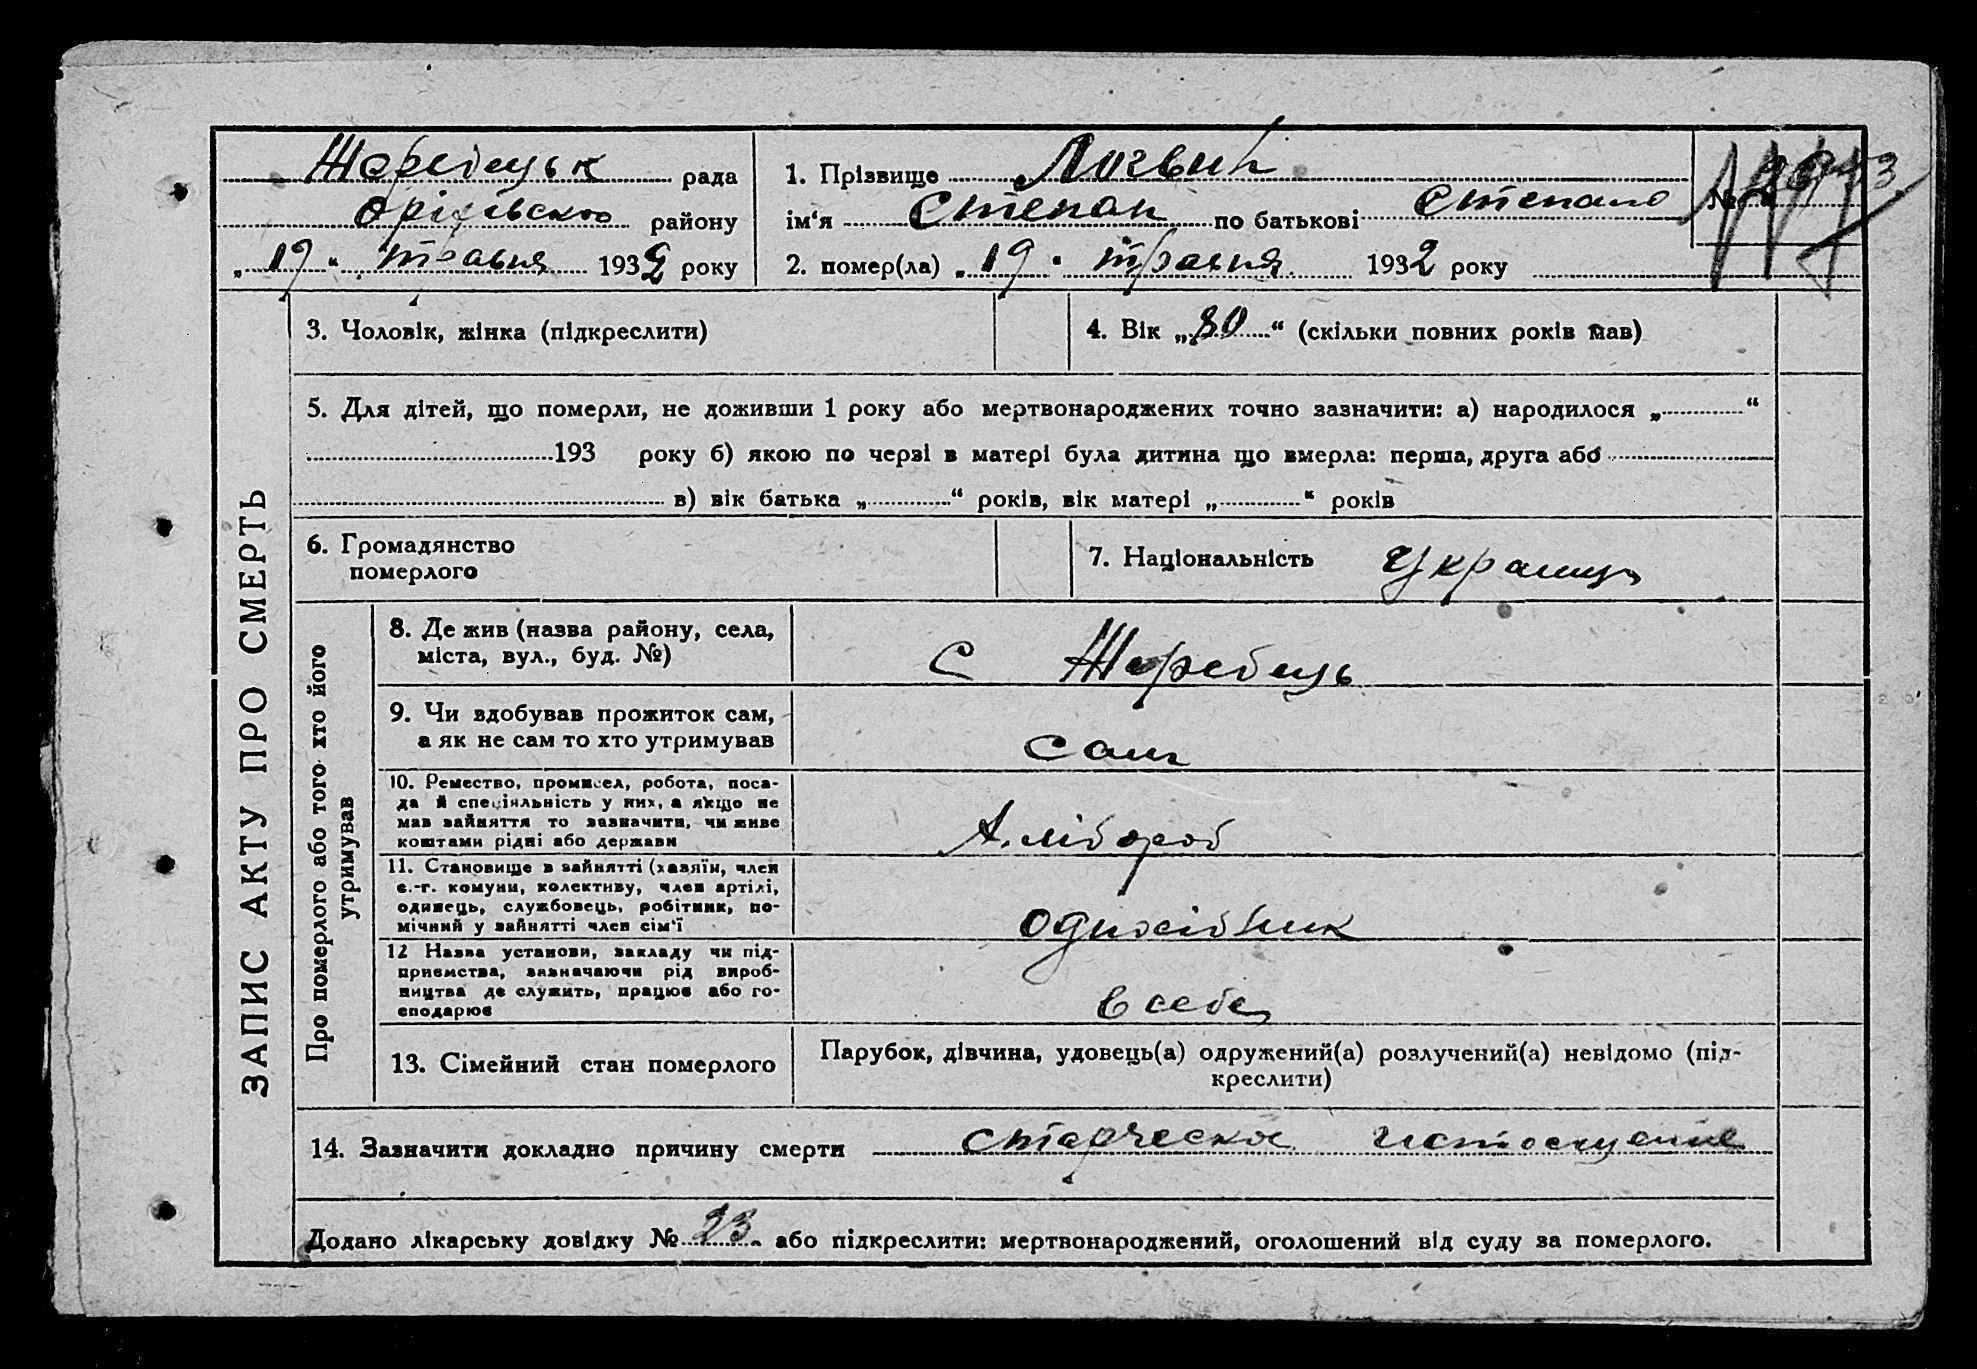 ЗАПИС АКТУ ПРО СМЕРТЬ
Жеребецьк рада
Оріхівсько району
„19“ травня 1932 року
1. Прізвище Логвин
ім‘я Степан по батькові Степано
2. помер(ла) „19“ травня 1932 року
№
3. Чоловік, жінка (підкреслити)
4. Вік „80“ (скільки повних років мав)
5. Для дітей, що померли, не доживши 1 року або мертвонароджених точно зазначити: а) народилося „ “
193 року б) якою по черзі в матері була дитина що вмерла: перша, друга або
в) вік батька „ “ років, вік матері „ “ років
6. Громадянство
померлого
7. Національність Украинц
Про померлого або того хто його
утримував
8. Де жив (назва району, села,
міста, вул., буд. №)
с Жеребець
9. Чи здобував прожиток сам,
а як не сам то хто утримував
сам
10. Ремество, промисел, робота, поса-
да й спеціяльність у них, а якщо не
мав зайняття то зазначити, чи живе
коштами рідні або держави
хлібороб
11. Становище в зайнятті (хазяїн, член
с.-г. комуни, колективу, член артілі,
одинець, службовець, робітник, по-
мічний у зайнятті член сім‘ї
одноосібник
12 Назва установи, закладу чи під-
приємства, зазначаючи рід вироб-
ництва де служить, працює або го-
сподарює
в себе
13. Сімейний стан померлого
Парубок, дівчина, удовець(а) одружений(а) розлучений(а) невідомо (під-
креслити)
14. Зазначити докладно причину смерти старческое истощение
Додано лікарську довідку № 23 або підкреслити: мертвонароджений, оголошений від суду за померлого.